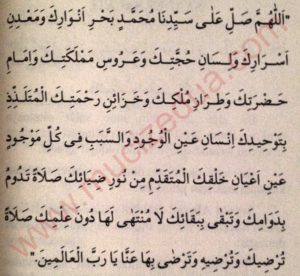 "اَللّٰهُمَّ صَلِّ عَلٰى سَيِّدِنَا مُحَمَّدٍ بَحْرِ اَنْوَارِكَ وَمَعْدِنِ
اَسْرَارِكَ وَلِسَانِ حُجَّتِكَ وَعَرُوسِ مَمْلَكَتِكَ وَاِمَامِ
حَضْرَتِكَ وَطِرَازِ مُلْكِكَ وَخَزَائِنِ رَحْمَتِكَ الْمُتَلَذِّذِ
بِتَوْحِيدِكَ اِنْسَانِ عَيْنِ الْوُجُودِ وَالسَّبَبِ فِى كُلِّ مَوْجُودٍ
عَيْنِ اَعْيَانِ خَلْقِكَ الْمُتَقَدِّمِ مِنْ نُورِ ضِيَائِكَ صَلَاةً تَدُومُ
بِدَوَامِكَ وَتَبْقٰى بِبَقَائِكَ لَا مُنْتَهٰى لَهَا دُونَ عِلْمِكَ صَلَاةً
تُرْضِيكَ وَتُرْضِيهِ وَتَرْضٰى بِهَا عَنَّا يَا رَبَّ الْعَالَمِينَ."